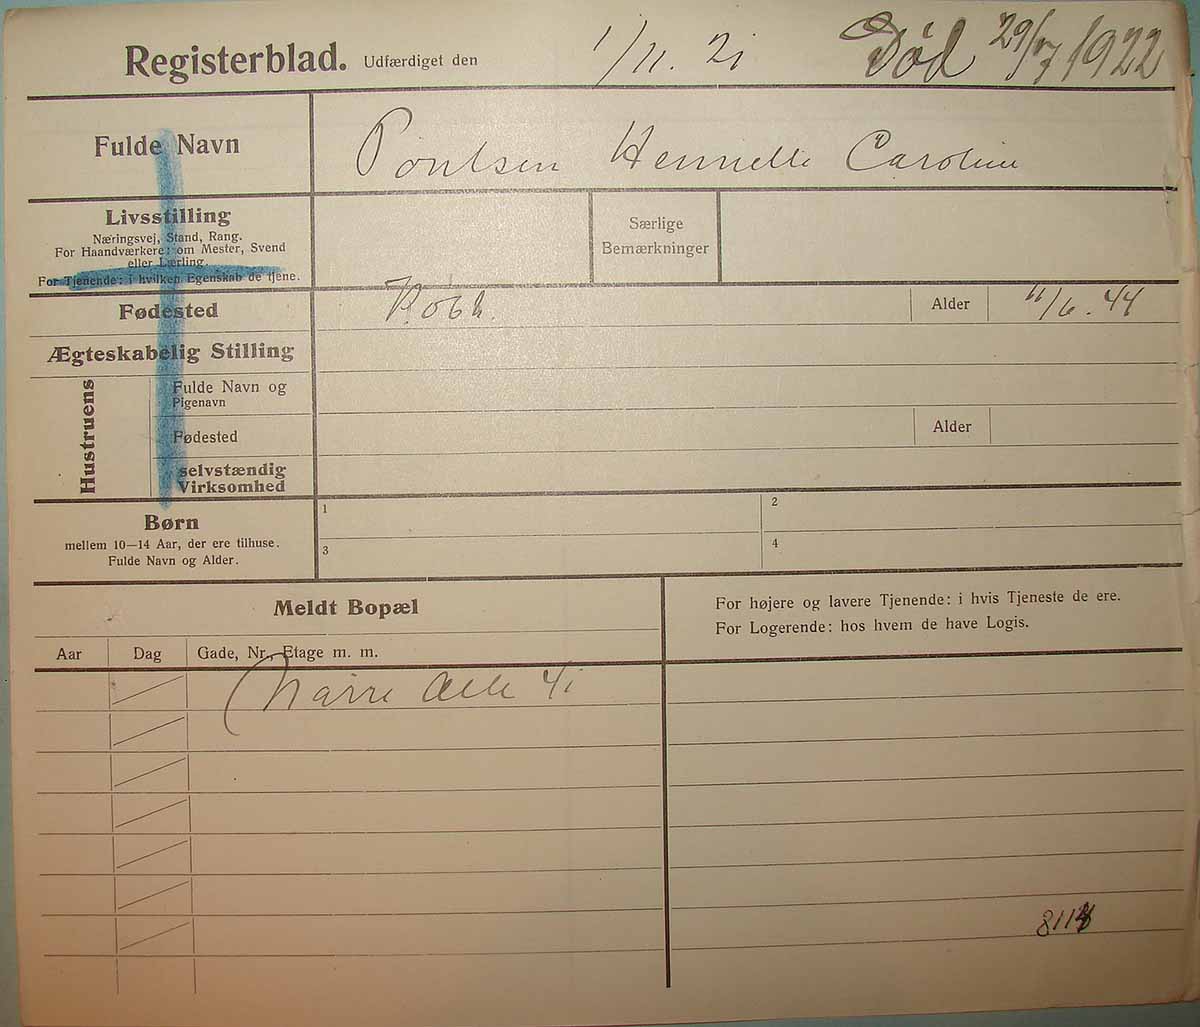 Registerblad. Udfærdiget den 1/11. 21 Død 29/7 1922
Fulde Navn Poulsen Caroline
Livsstilling
Næringsvej, Stand, Rang.
For Haandværkere: om Mester, Svend
eller Lærling.
For Tjenende: i hvilken Egenskab de tjene.
Særlige
Bemærkninger
Fødested Kbh. Alder 11/6. 44
Ægteskabelig Stilling
Hustruens
Fulde Navn og
Pigenavn
Fødested Alder
selvstændig
Virksomhed
Børn
mellem 10—14 Aar, der ere tilhuse.
Fulde Navn og Alder.
1 2
3 4
Meldt Bopæl
For højere og lavere Tjenende: i hvis Tjeneste de ere.
For Logerende: hos hvem de have Logis.
Aar Dag Gade, Nr., Etage m. m.
Nørre Alle 41
8114